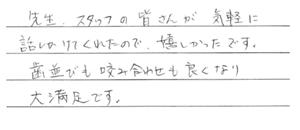 先生、スタッフの皆さんが気軽に
話しかけてくれたので、嬉しかったです。
歯並びも咬み合わせも良くなり
大満足です。